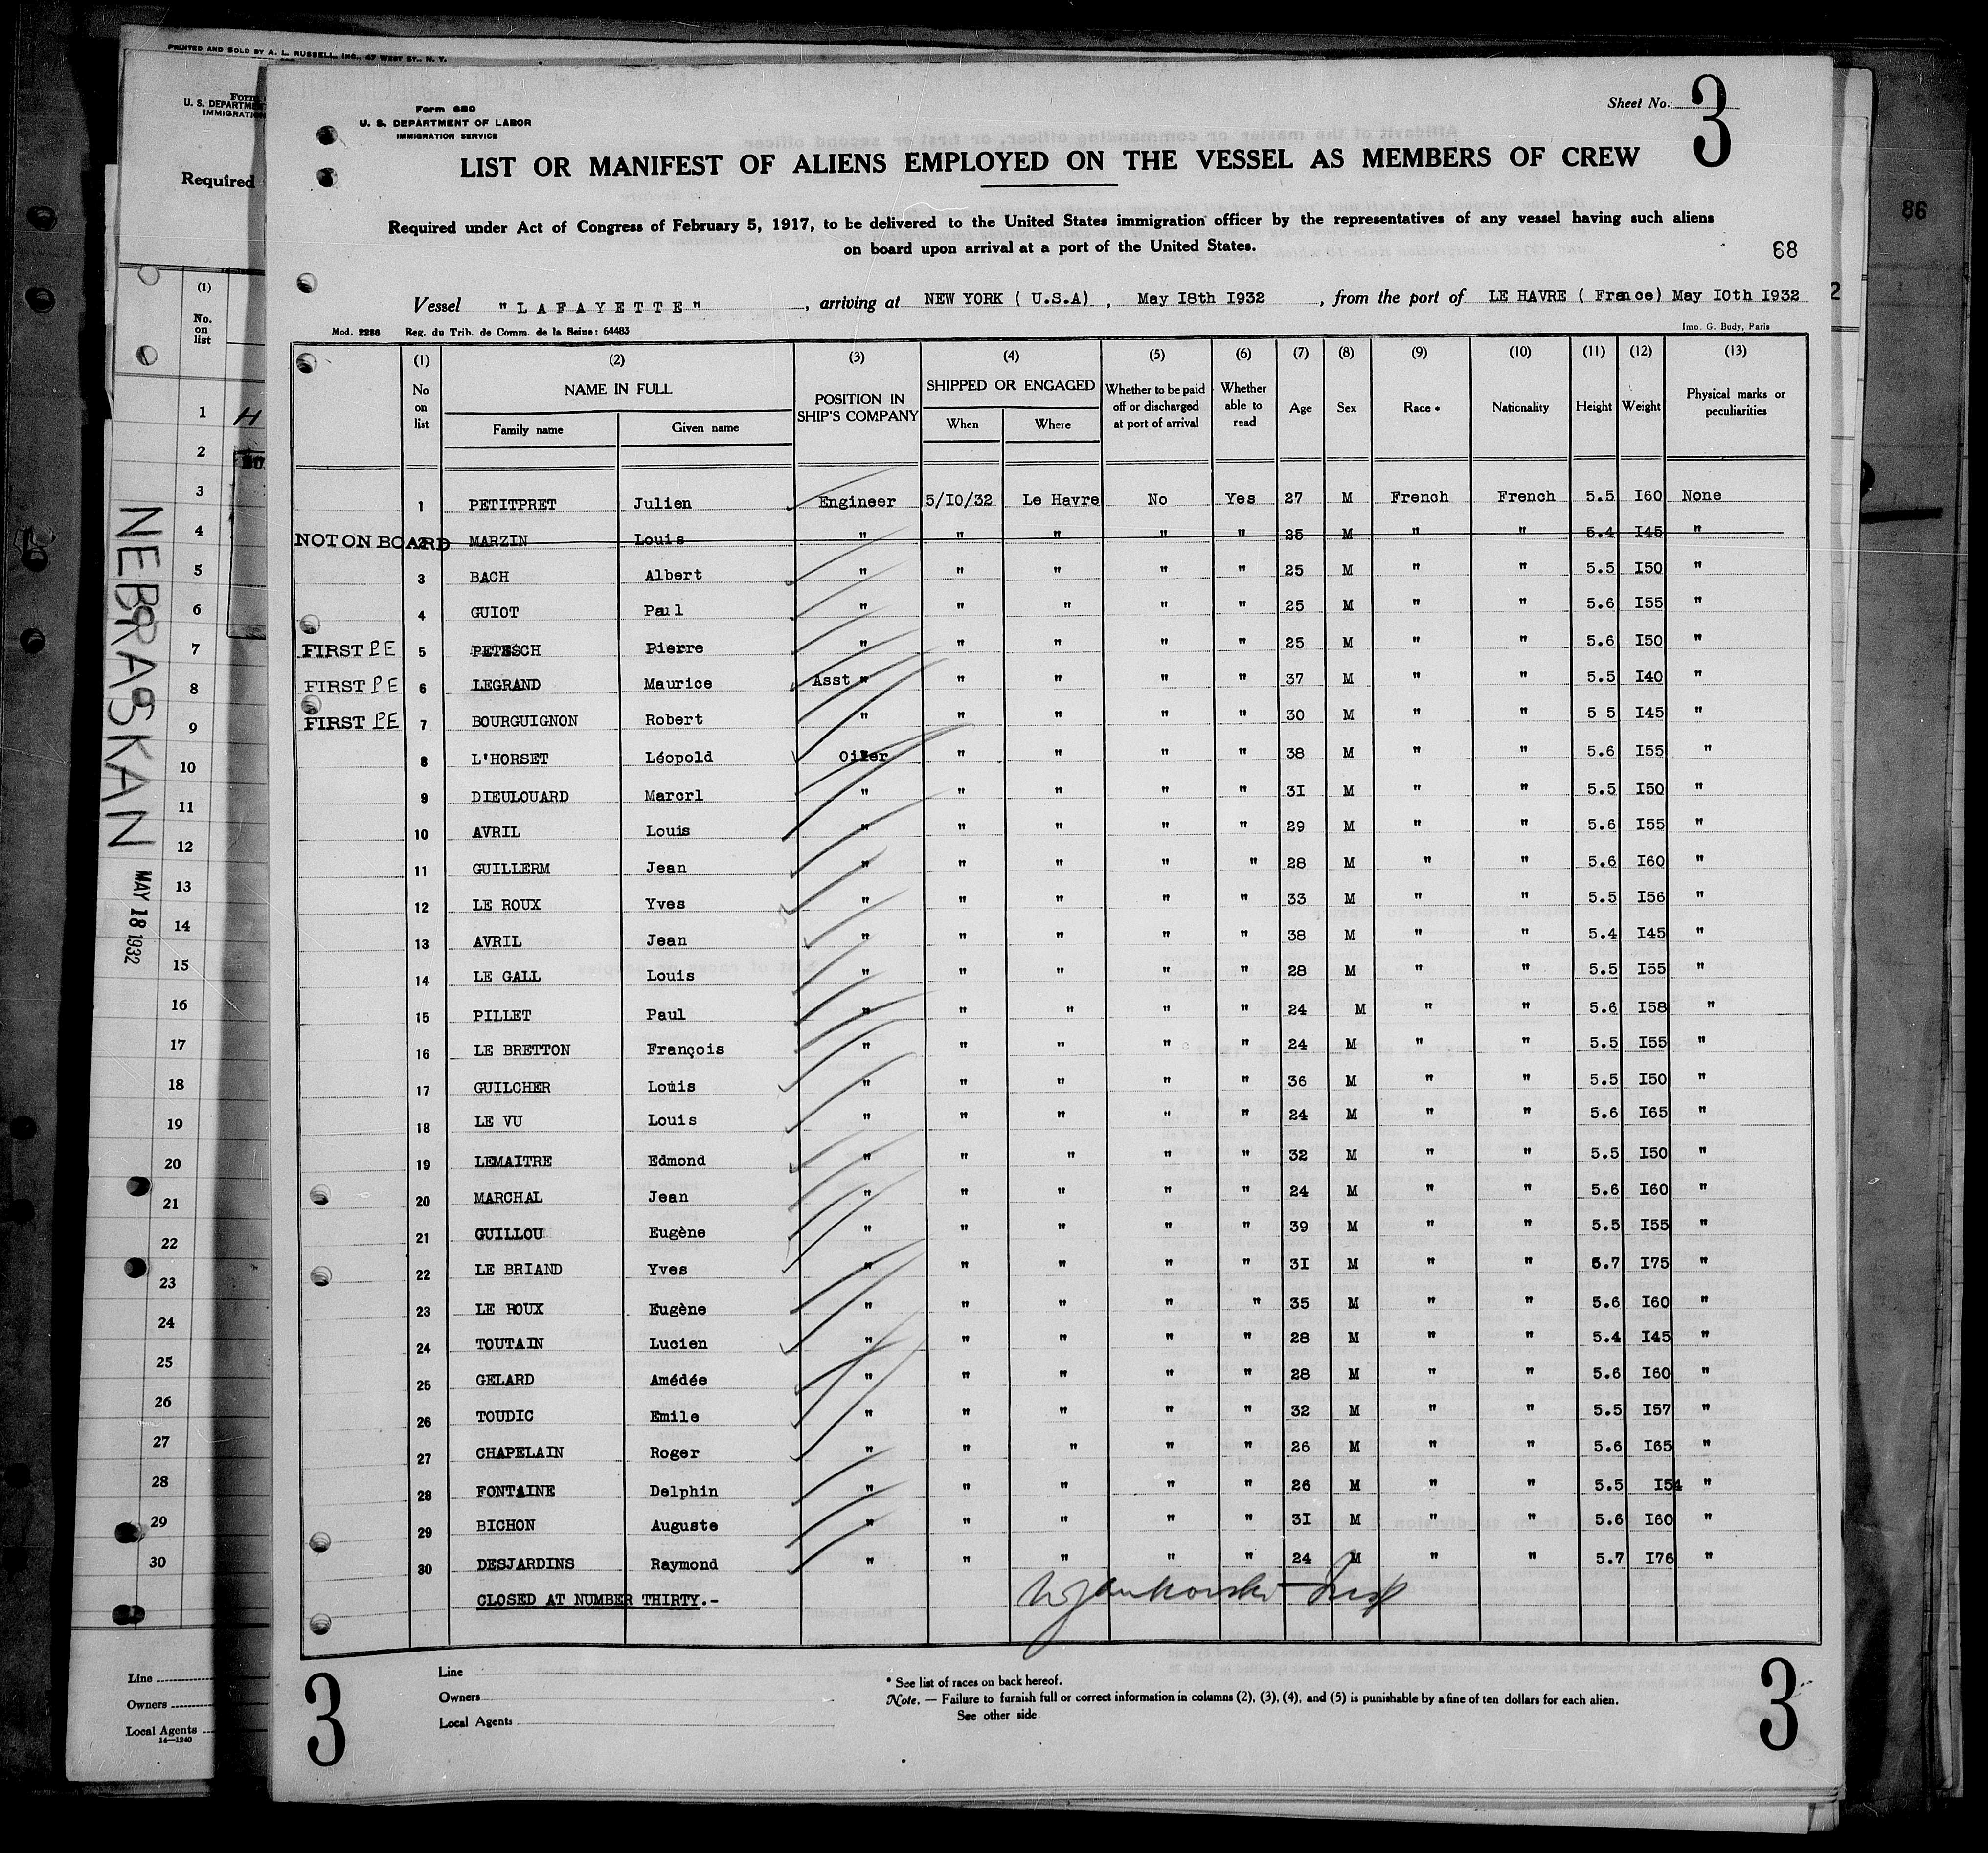 PRINTED AND SOLD BY A. L. RUSSELL, INC., 47 WEST ST., N. Y.
Form
U. S. DEPARTME
IMMIGRATIO
Required
(1)
No.
on
list
1 H
2
3
4
5
6
7
8
9
10
11
12
13
14
15
16
17
18
19
20
21
22
23
24
25
26
27
28
29
30
NEBRASKAN MAY 18 1932
Line
Owners
Local Agents
14—1240
86
2
Form 680
U. S. DEPARTMENT OF LABOR
IMMIGRATION SERVICE
Sheet No. 3
LIST OR MANIFEST OF ALIENS EMPLOYED ON THE VESSEL AS MEMBERS OF CREW
Required under Act of Congress of February 5, 1917, to be delivered to the United States immigration officer by the representatives of any vessel having such aliens
on board upon arrival at a port of the United States.
68
Vessel "LAFAYETTE", arriving at NEW YORK ( U.S.A) , May I8th I932, from the port of LE HAVRE ( France) May IOth I932
Mod. 2286 Reg. du Trib. de Comm. de la Seine: 64483 Imp. G. Budy, Paris
(1) (2) (3) (4) (5) (6) (7) (8) (9) (10) (11) (12) (13)
No on list NAME IN FULL Family name Given name POSITION IN SHIP'S COMPANY SHIPPED OR ENGAGED When Where Whether to be paid off or discharged at port of arrival Whether able to read Age Sex Race * Nationality Height Weight Physical marks or peculiarities
1 PETITPRET Julien Engineer 5/IO/32 Le Havre No Yes 27 M French French 5.5 I60 None
NOT ON BOARD 2 MARZIN Louis " " " " " 25 M " " 5.4 I45 "
3 BACH Albert " " " " " 25 M " " 5.5 I50 "
4 GUIOT Paul " " " " " 25 M " " 5.6 I55 "
FIRST PE 5 PETESCH Pierre " " " " " 25 M " " 5.6 I50 "
FIRST P.E 6 LEGRAND Maurice Asst " " " " " 37 M " " 5.5 I40 "
FIRST PE 7 BOURGUIGNON Robert " " " " " 30 M " " 5 5 I45 "
8 L'HORSET Léopold Oiler " " " " 38 M " " 5.6 I55 "
9 DIEULOUARD Marcrl " " " " " 3I M " " 5.5 I50 "
10 AVRIL Louis " " " " " 29 M " " 5.6 I55 "
11 GUILLERM Jean " " " " " 28 M " " 5.6 I60 "
12 LE ROUX Yves " " " " " 33 M " " 5.5 I56 "
13 AVRIL Jean " " " " " 38 M " " 5.4 I45 "
14 LE GALL Louis " " " " " 28 M " " 5.5 I55 "
15 PILLET Paul " " " " " 24 M " " 5.6 I58 "
16 LE BRETTON François " " " " " 24 M " " 5.5 I55 "
17 GUILCHER Louis " " " " " 36 M " " 5.5 I50 "
18 LE VU Louis " " " " " 24 M " " 5.6 I65 "
19 LEMAITRE Edmond " " " " " 32 M " " 5.5 I50 "
20 MARCHAL Jean " " " " " 24 M " " 5.6 I60 "
21 GUILLOU Eugène " " " " " 39 M " " 5.5 I55 "
22 LE BRIAND Yves " " " " " 3I M " " 5.7 I75 "
23 LE ROUX Eugène " " " " " 35 M " " 5.6 I60 "
24 TOUTAIN Lucien " " " " " 28 M " " 5.4 I45 "
25 GELARD Amédée " " " " " 28 M " " 5.6 I60 "
26 TOUDIC Emile " " " " " 32 M " " 5.5 I57 "
27 CHAPELAIN Roger " " " " " 26 M " " 5.6 I65 "
28 FONTAINE Delphin " " " " " 26 M " " 5.5 I54 "
29 BICHON Auguste " " " " " 3I M " " 5.6 I60 "
30 DESJARDINS Raymond " " " " " 24 M " " 5.7 I76 "
CLOSED AT NUMBER THIRTY.-
Insp
3
Line
Owners
Local Agents
* See list of races on back hereof.
Note. — Failure to furnish full or correct information in columns (2), (3), (4), and (5) is punishable by a fine of ten dollars for each alien.
See other side.
3